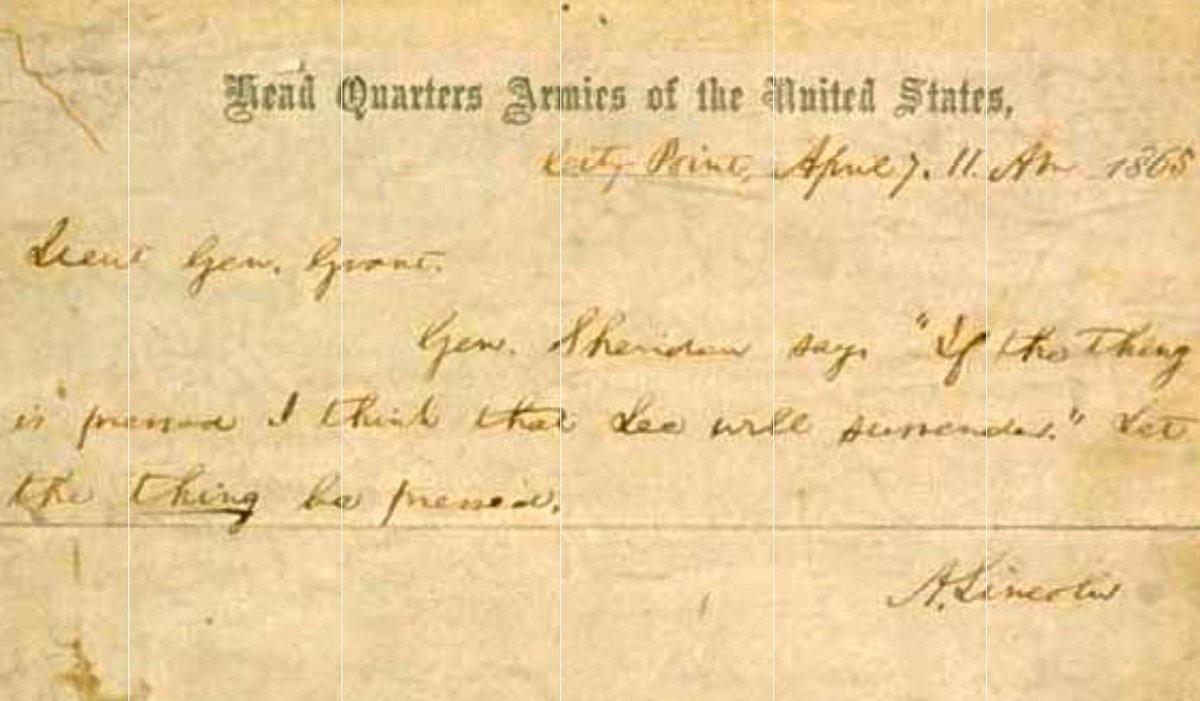 Head Quarters Armies of the United States,
City Point, April 7. 11. AM 1865
Lieut Gen. Grant.
Gen. Sheridan says "If the thing
is pressed I think that Lee will surrender." Let
the thing be pressed.
A. Lincoln